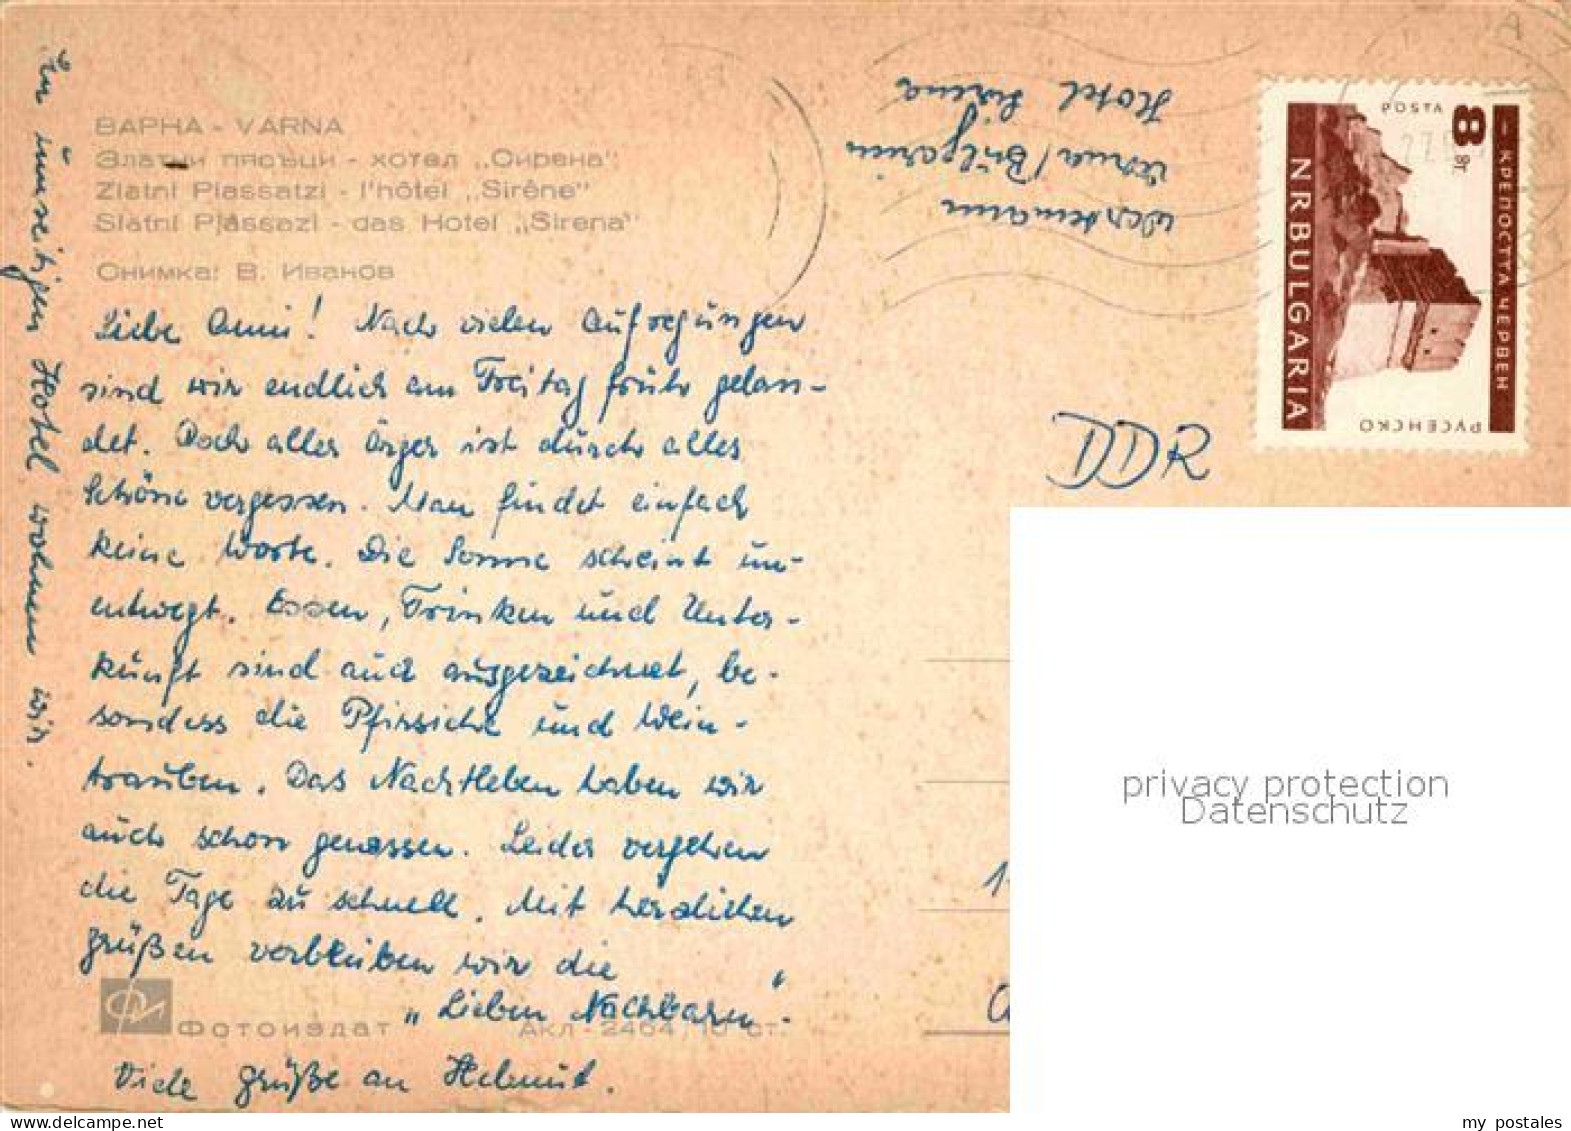 ВАРНА - VARNA
Златни пясъци - хотел „Сирена“
Zlatni Piassatzi - l'hôtel „Sirène"
Slatni Pjassazi - das Hotel „Sirena"
Снимка: В. Иванов
Liebe Anni! Nach vielen Aufregungen
sind wir endlich am Freitag früh gelan-
det. Doch aller Ärger ist durch alles
Schöne vergessen. Man findet einfach
keine Worte. Die Sonne scheint un-
entwegt. Essen, Trinken und Unter-
kunft sind auch ausgezeichnet, be-
sonders die Pfirsiche und Wein-
trauben. Das Nachtleben haben wir
auch schon genossen. Leider vergehen
die Tage zu schnell. Mit herzlichen
Grüßen verbleiben wir die
„Lieben Nachbarn".
Viele Grüße an Helmut.
Im umseitigen Hotel wohnen wir.
Фотоиздат
Акл - 2464/10 ст.
Varna/Bulgarien
Hotel Sirena
DDR
8 ст.
POŠTA
КРЕПОСТТА ЧЕРВЕН
РУСЕНСКО
NRBULGARIA
privacy protection
Datenschutz
delcampe.net
my_postales